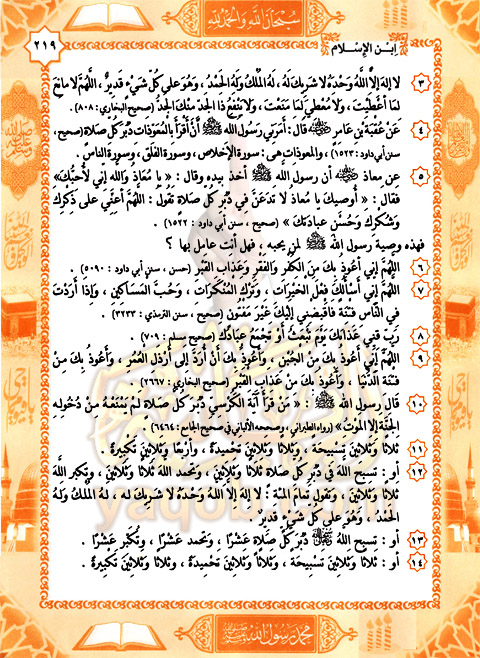 سبحان الله والحمد لله
ابن الإسلام
٢١٩
٣ لا إله إلا الله وحده لا شريك له ، له الملك وله الحمد ، وهو على كل شيء قدير ، اللهم لا مانع
لما أعطيت ، ولا معطي لما منعت ، ولا ينفع ذا الجد منك الجد (صحيح البخاري : ٨٠٨) .
٤ عن عقبة بن عامر قال : أمرني رسول الله ﷺ أن أقرأ بالمعوذات دبر كل صلاة (صحيح ،
سنن أبي داود : ١٥٢٣) ، والمعوذات هي : سورة الإخلاص ، وسورة الفلق ، وسورة الناس .
٥ عن معاذ أن رسول الله ﷺ أخذ بيده وقال : « يا معاذ والله إني لأحبك»
فقال : « أوصيك يا معاذ لا تدعن في دبر كل صلاة تقول : اللهم أعني على ذكرك
وشكرك وحسن عبادتك » (صحيح ، سنن أبي داود : ١٥٢٢) .
فهذه وصية رسول الله ﷺ لمن يحبه ، فهل أنت عامل بها ؟
٦ اللهم إني أعوذ بك من الكفر والفقر وعذاب القبر (حسن ، سنن أبي داود : ٥٠٩٠) .
٧ اللهم إني أسألك فعل الخيرات ، وترك المنكرات ، وحب المساكين ، وإذا أردت
في الناس فتنة فاقبضني إليك غير مفتون (صحيح ، سنن الترمذي : ٣٢٣٣) .
٨ رب قني عذابك يوم تبعث أو تجمع عبادك (صحيح مسلم : ٧٠٩) .
٩ اللهم إني أعوذ بك من الجبن ، وأعوذ بك أن أرد إلى أرذل العمر ، وأعوذ بك من
فتنة الدنيا ، وأعوذ بك من عذاب القبر (صحيح البخاري : ٢٦٦٧) .
١٠ قال رسول الله ﷺ : « من قرأ آية الكرسي دبر كل صلاة لم يمنعه من دخوله
الجنة إلا الموت » (رواه الطبراني ، وصححه الألباني في صحيح الجامع : ٦٤٦٤) .
١١ ثلاثا وثلاثين تسبيحة ، وثلاثا وثلاثين تحميدة ، وأربعا وثلاثين تكبيرة .
١٢ أو : تسبح الله في دبر كل صلاة ثلاثا وثلاثين ، وتحمد الله ثلاثا وثلاثين ، وتكبر الله
ثلاثا وثلاثين ، وتقول تمام المئة : لا إله إلا الله وحده لا شريك له ، له الملك وله
الحمد ، وهو على كل شيء قدير .
١٣ أو : تسبح الله دبر كل صلاة عشرا ، وتحمد عشرا ، وتكبر عشرا .
١٤ أو : ثلاثا وثلاثين تسبيحة ، وثلاثا وثلاثين تحميدة ، وثلاثا وثلاثين تكبيرة .
محمد رسول الله